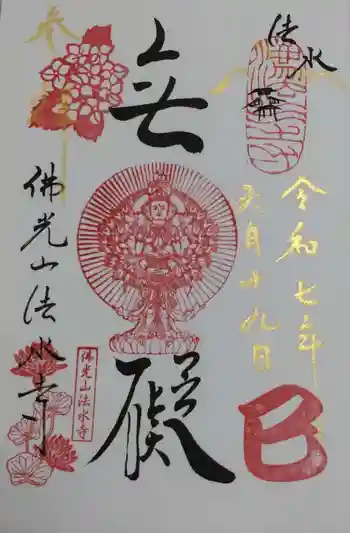 法水
令和七年
六月十九日
巳
無礙
佛光山法水寺
参拝
佛光山法水寺